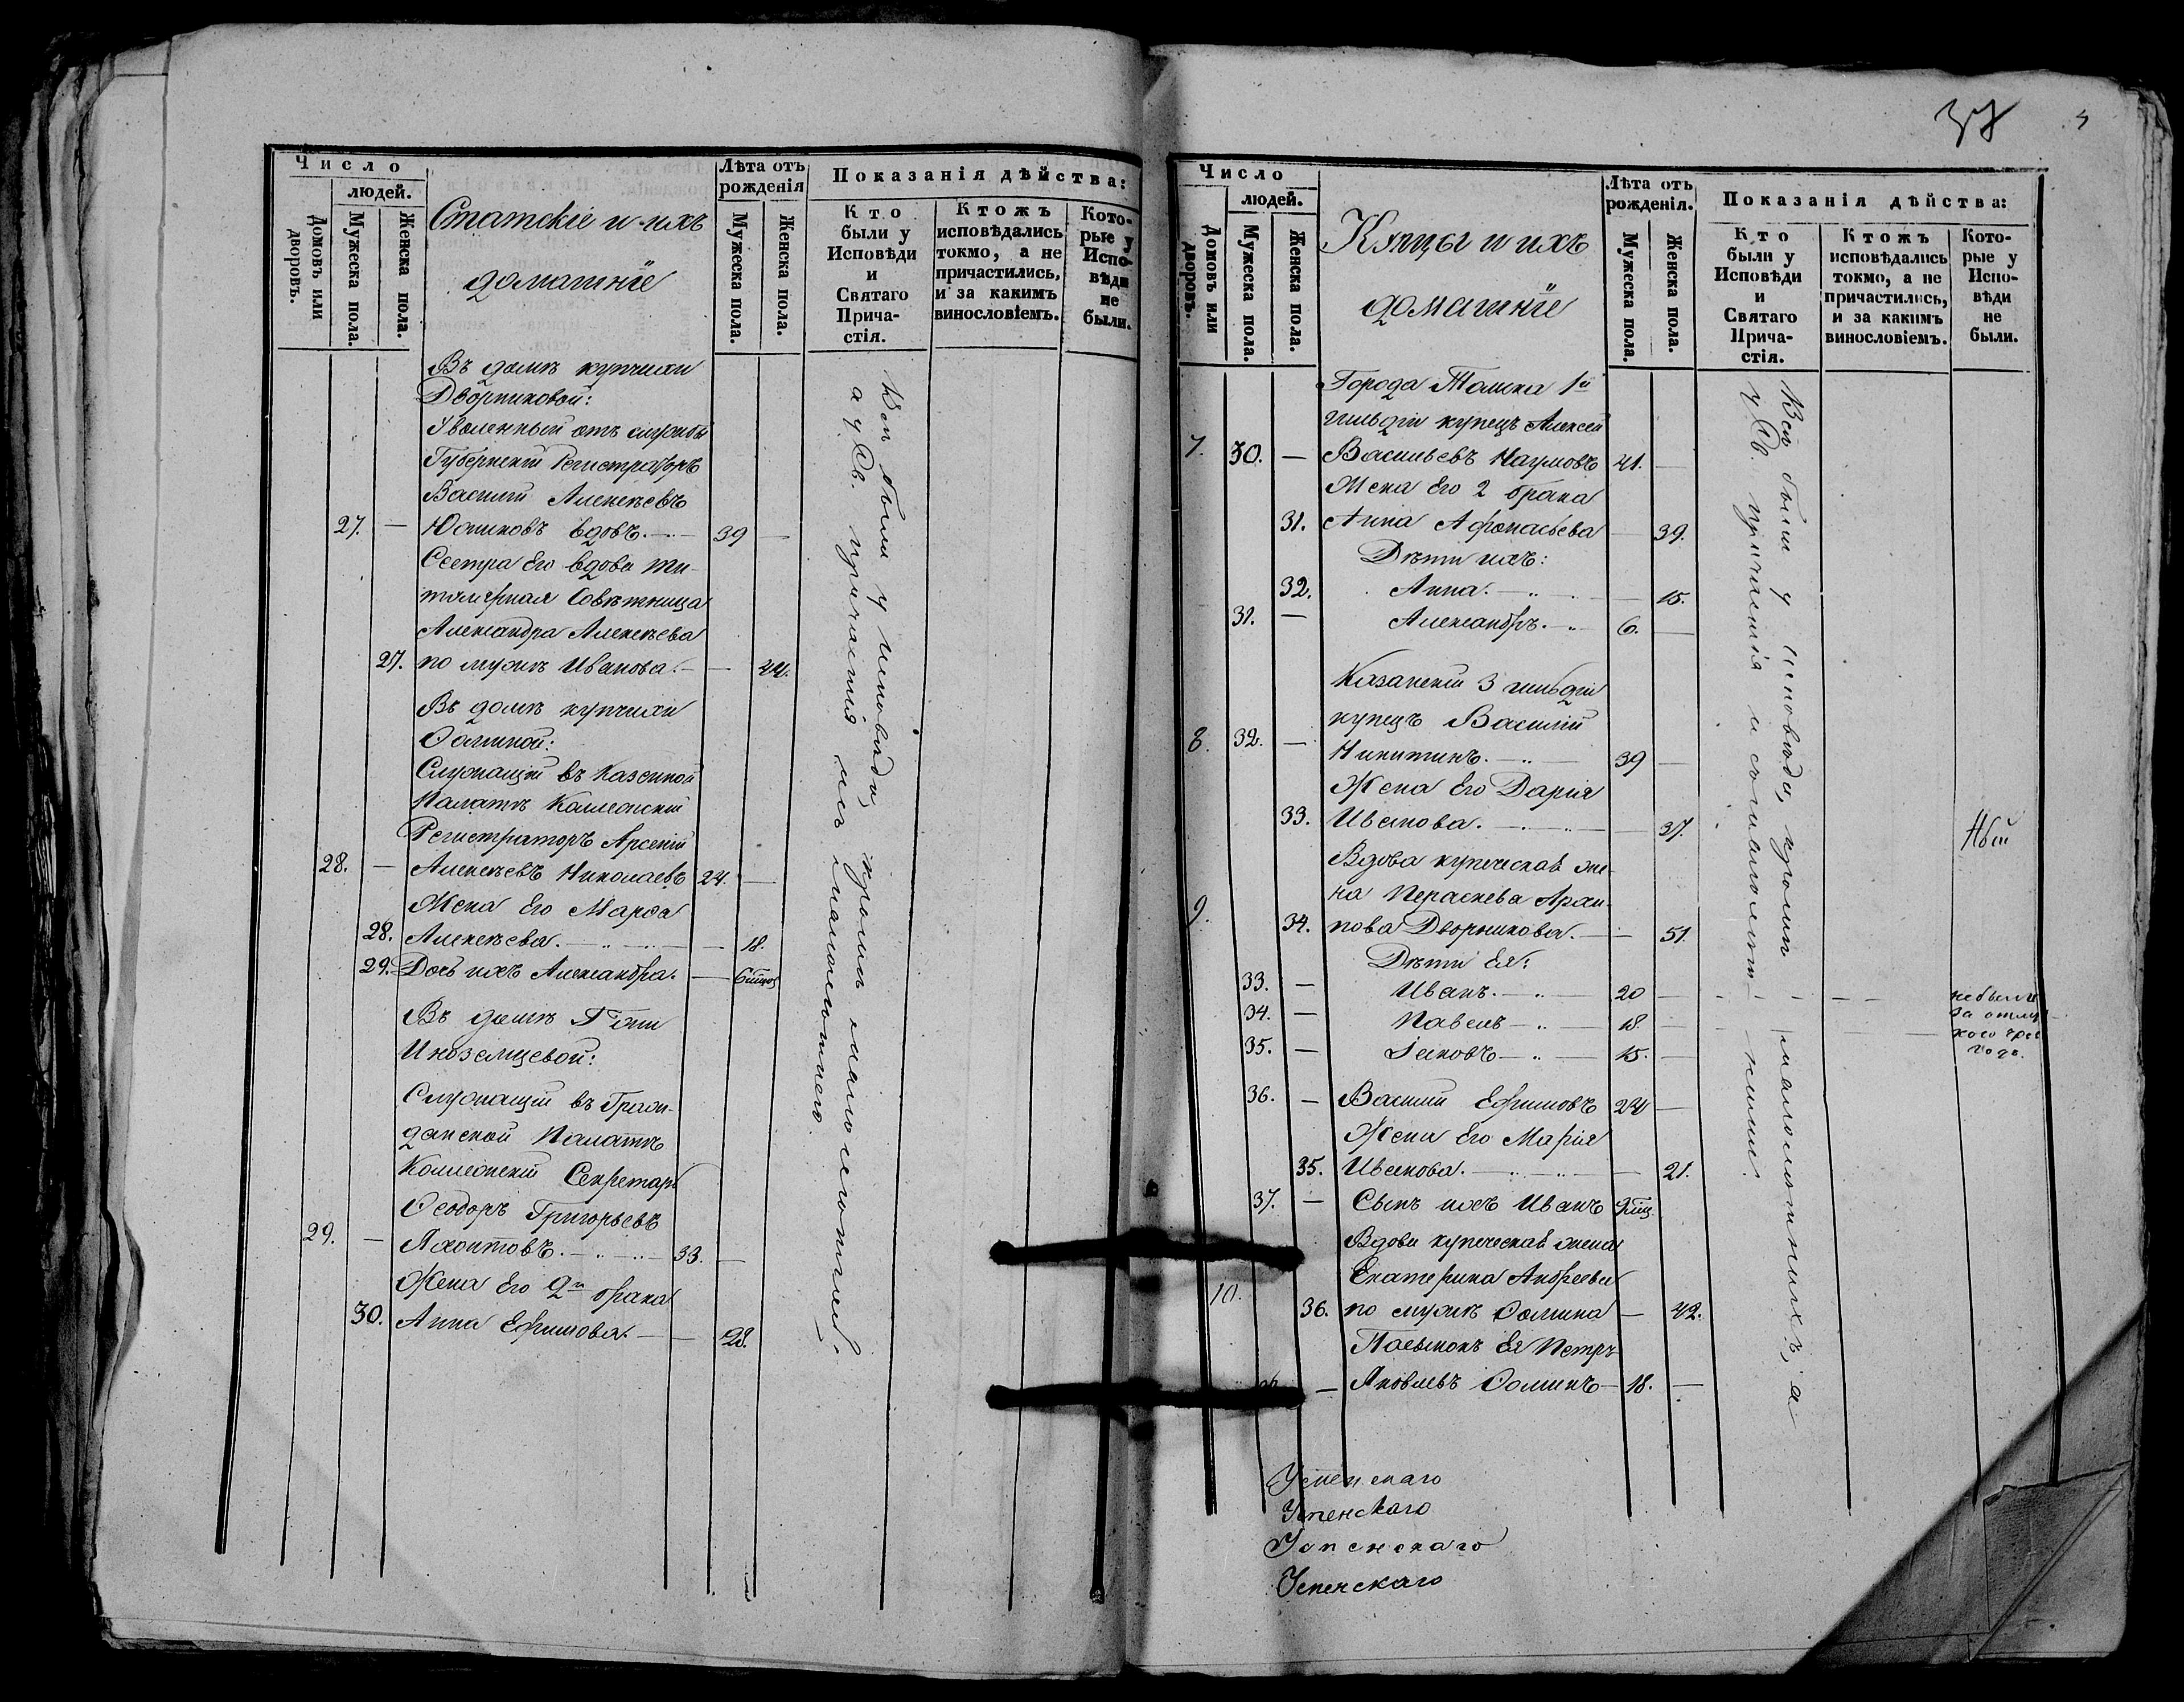 Число
людей.
Домовъ или дворовъ.
Мужеска пола.
Женска пола.
Статскіе и ихъ
домашніе
Лѣта отъ рожденія
Мужеска пола.
Женска пола.
Показанія дѣйства:
Кто были у Исповѣди и Святаго Прича-стія.
Ктожъ исповѣдались токмо, а не причастились, и за какимъ винословіемъ.
Кото-рые у Испо-вѣди не были.
Въ домѣ купчихи
Дворниковой:
Уволенный отъ службы
Губернскій Регистраторъ
Василій Алексѣевъ
27. — вдовъ. — 39 —
Сестра Его вдова ти-
тулярная Совѣтница
Александра Алексѣева
27. по мужѣ Иванова. — —
Въ домѣ купчихи
Ѳоминой:
Служащій въ Казенной
Палатѣ Коллежскій
Регистраторъ Арсеній
28. — Алексѣевъ Николаевъ 24. —
Жена Его Марѳа
28. Алексѣева. — — 18.
29. Дочь ихъ Александра. — 6 мѣсяц
Въ домѣ
Иноземцевой:
Служащій въ Граж-
данской Палатѣ
Коллежскій Секретарь
Ѳеодоръ Григорьевъ
29. — Яхонтовъ. — 33. —
Жена Его 2го брака
30. Анна Ефимова. — — 28.
Всѣ были у исповѣди,
а у Св. причастія
кромѣ малолѣтней
38
Число
людей.
Домовъ или дворовъ.
Мужеска пола.
Женска пола.
Купцы и ихъ
домашніе
Лѣта отъ рожденія.
Мужеска пола.
Женска пола.
Показанія дѣйства:
Кто были у Исповѣди и Святаго Прича-стія.
Ктожъ исповѣдались токмо, а не причастились, и за какимъ винословіемъ.
Кото-рые у Испо-вѣди не были.
Города Томска 1й
гильдіи купецъ Алексѣй
7. 30. — Васильевъ Наумовъ 41. —
Жена Его 2 брака
31. Анна Афонасьева — 39.
Дѣти ихъ:
32. Анна. — — 15.
31. — Александръ. — 6. —
Казанскій 3 гильдіи
купецъ Василій
8. 32. — Никитинъ. — 39 —
Жена Его Дарія
33. Иванова. — — 37.
Вдова купеческая же-
на Пераскева Архи-
9. 34. пова Дворникова. — — 51.
Дѣти Ея:
33. — Иванъ. — 20 —
34. — Павелъ — 18. —
35. — Іаковъ — 15. —
не были
за отлуч
кою
36. — Василій Ефимовъ 24 —
Жена Его Марія
35. Иванова. — — 21.
37. — Сынъ ихъ Иванъ 9 мѣсц.
Вдова купеческая жена
Екатерина Андреева
10. 36. по мужѣ Ѳомина — 42.
Пасынокъ Ея Петръ
— Яковлевъ Ѳоминъ — 18. —
Всѣ были у исповѣди, кромѣ малолѣтнихъ, а
у Св. причастія и съ малолѣт-ними.
Успенскаго
Успенскаго
Успенскаго
Успенскаго